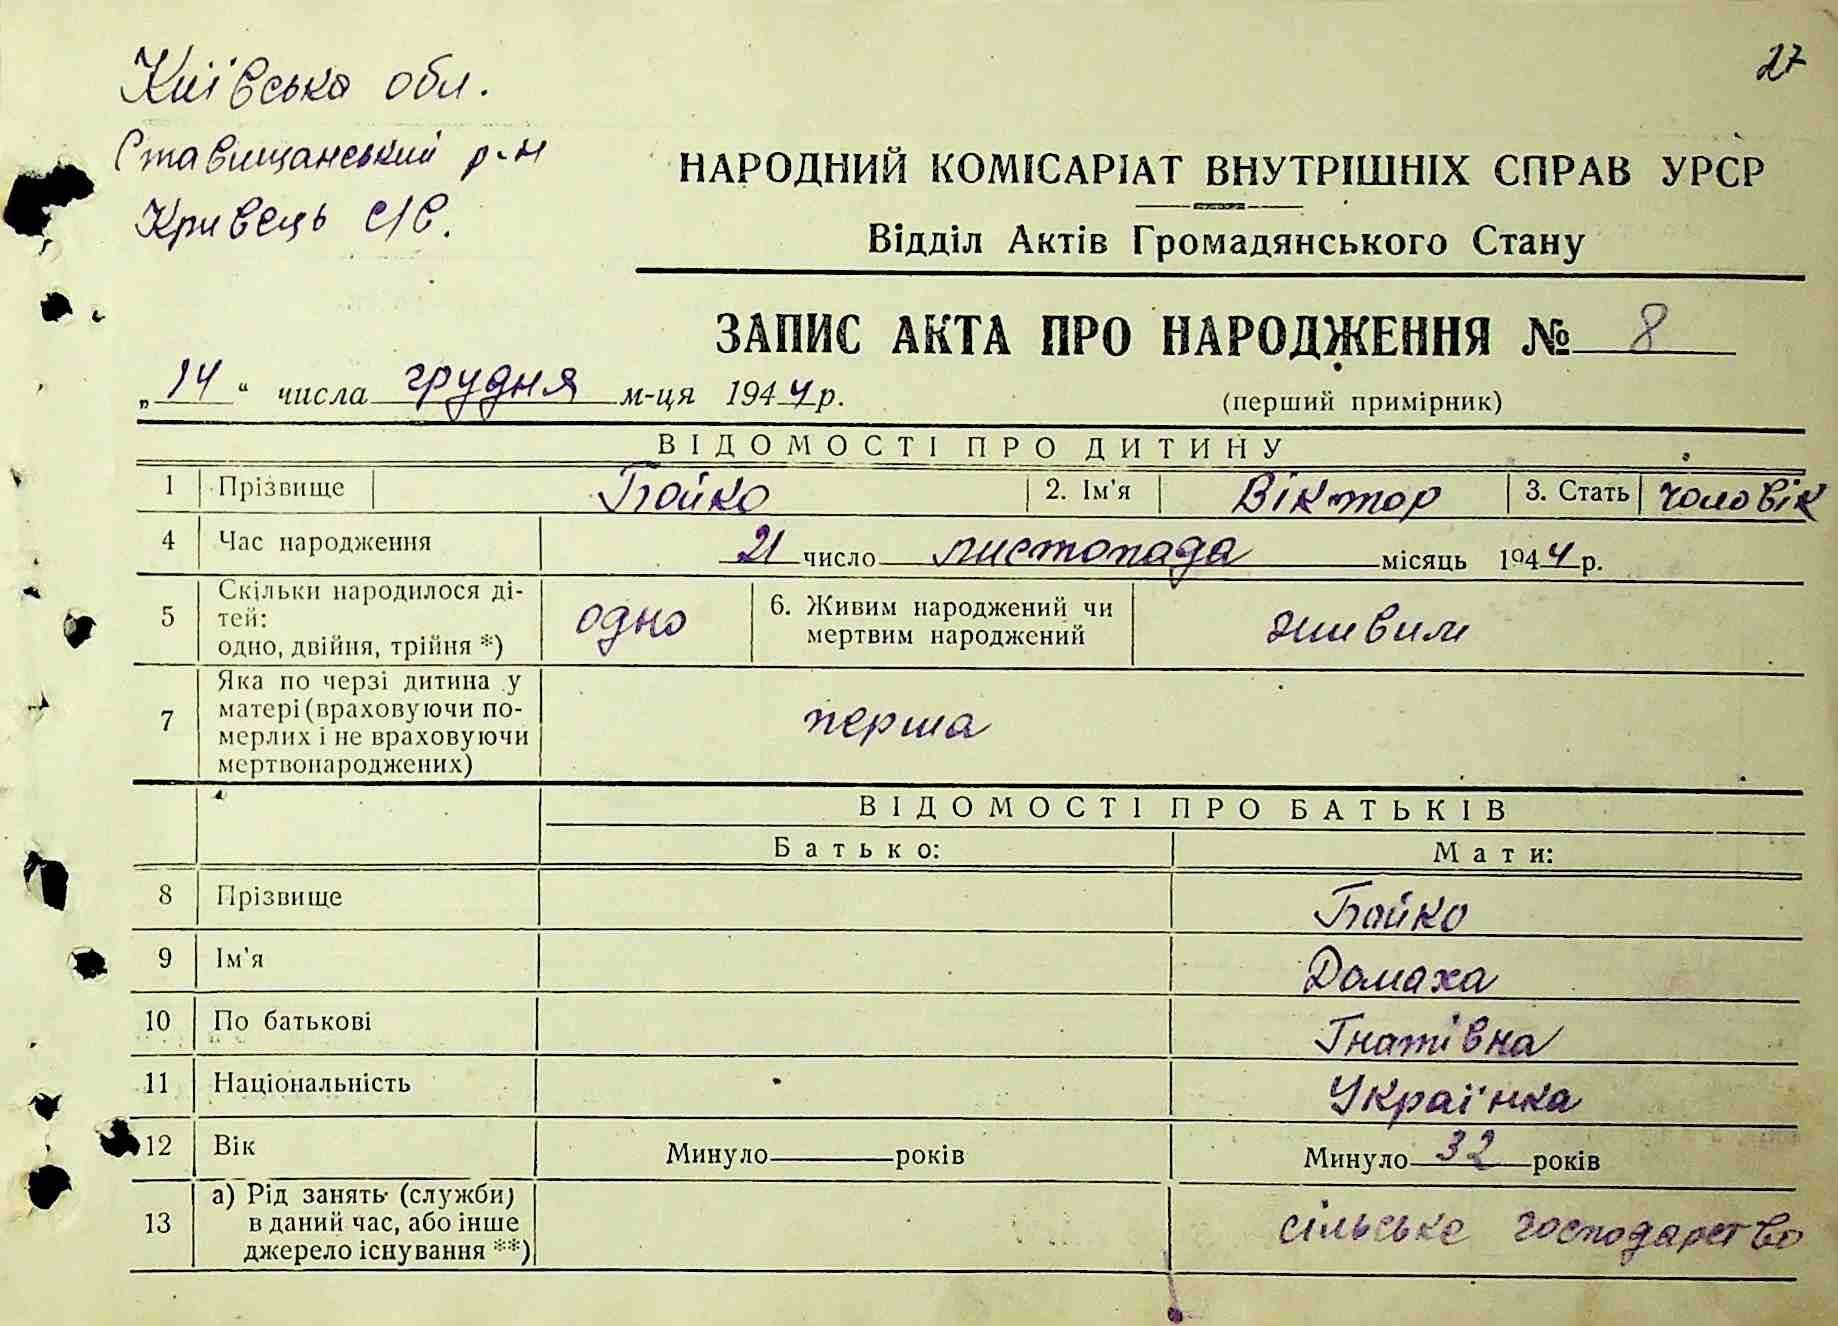 27
Київська обл.
Ставищанський р-н
Кривець с/в.
НАРОДНИЙ КОМІСАРІАТ ВНУТРІШНІХ СПРАВ УРСР
Відділ Актів Громадянського Стану
ЗАПИС АКТА ПРО НАРОДЖЕННЯ № 8
„14“ числа грудня м-ця 1944 р.
(перший примірник)
ВІДОМОСТІ ПРО ДИТИНУ
1 Прізвище Бойко 2. Ім'я Віктор 3. Стать чоловік
4 Час народження 21 число листопада місяць 1944 р.
5 Скільки народилося ді-
тей:
одно, двійня, трійня *) одно 6. Живим народжений чи
мертвим народжений живим
7 Яка по черзі дитина у
матері (враховуючи по-
мерлих і не враховуючи
мертвонароджених) перша
ВІДОМОСТІ ПРО БАТЬКІВ
Батько: Мати:
8 Прізвище Бойко
9 Ім'я Домаха
10 По батькові Гнатівна
11 Національність Українка
12 Вік Минуло років Минуло 32 років
13 а) Рід занять (служби)
в даний час, або інше
джерело існування **) сільське господарство